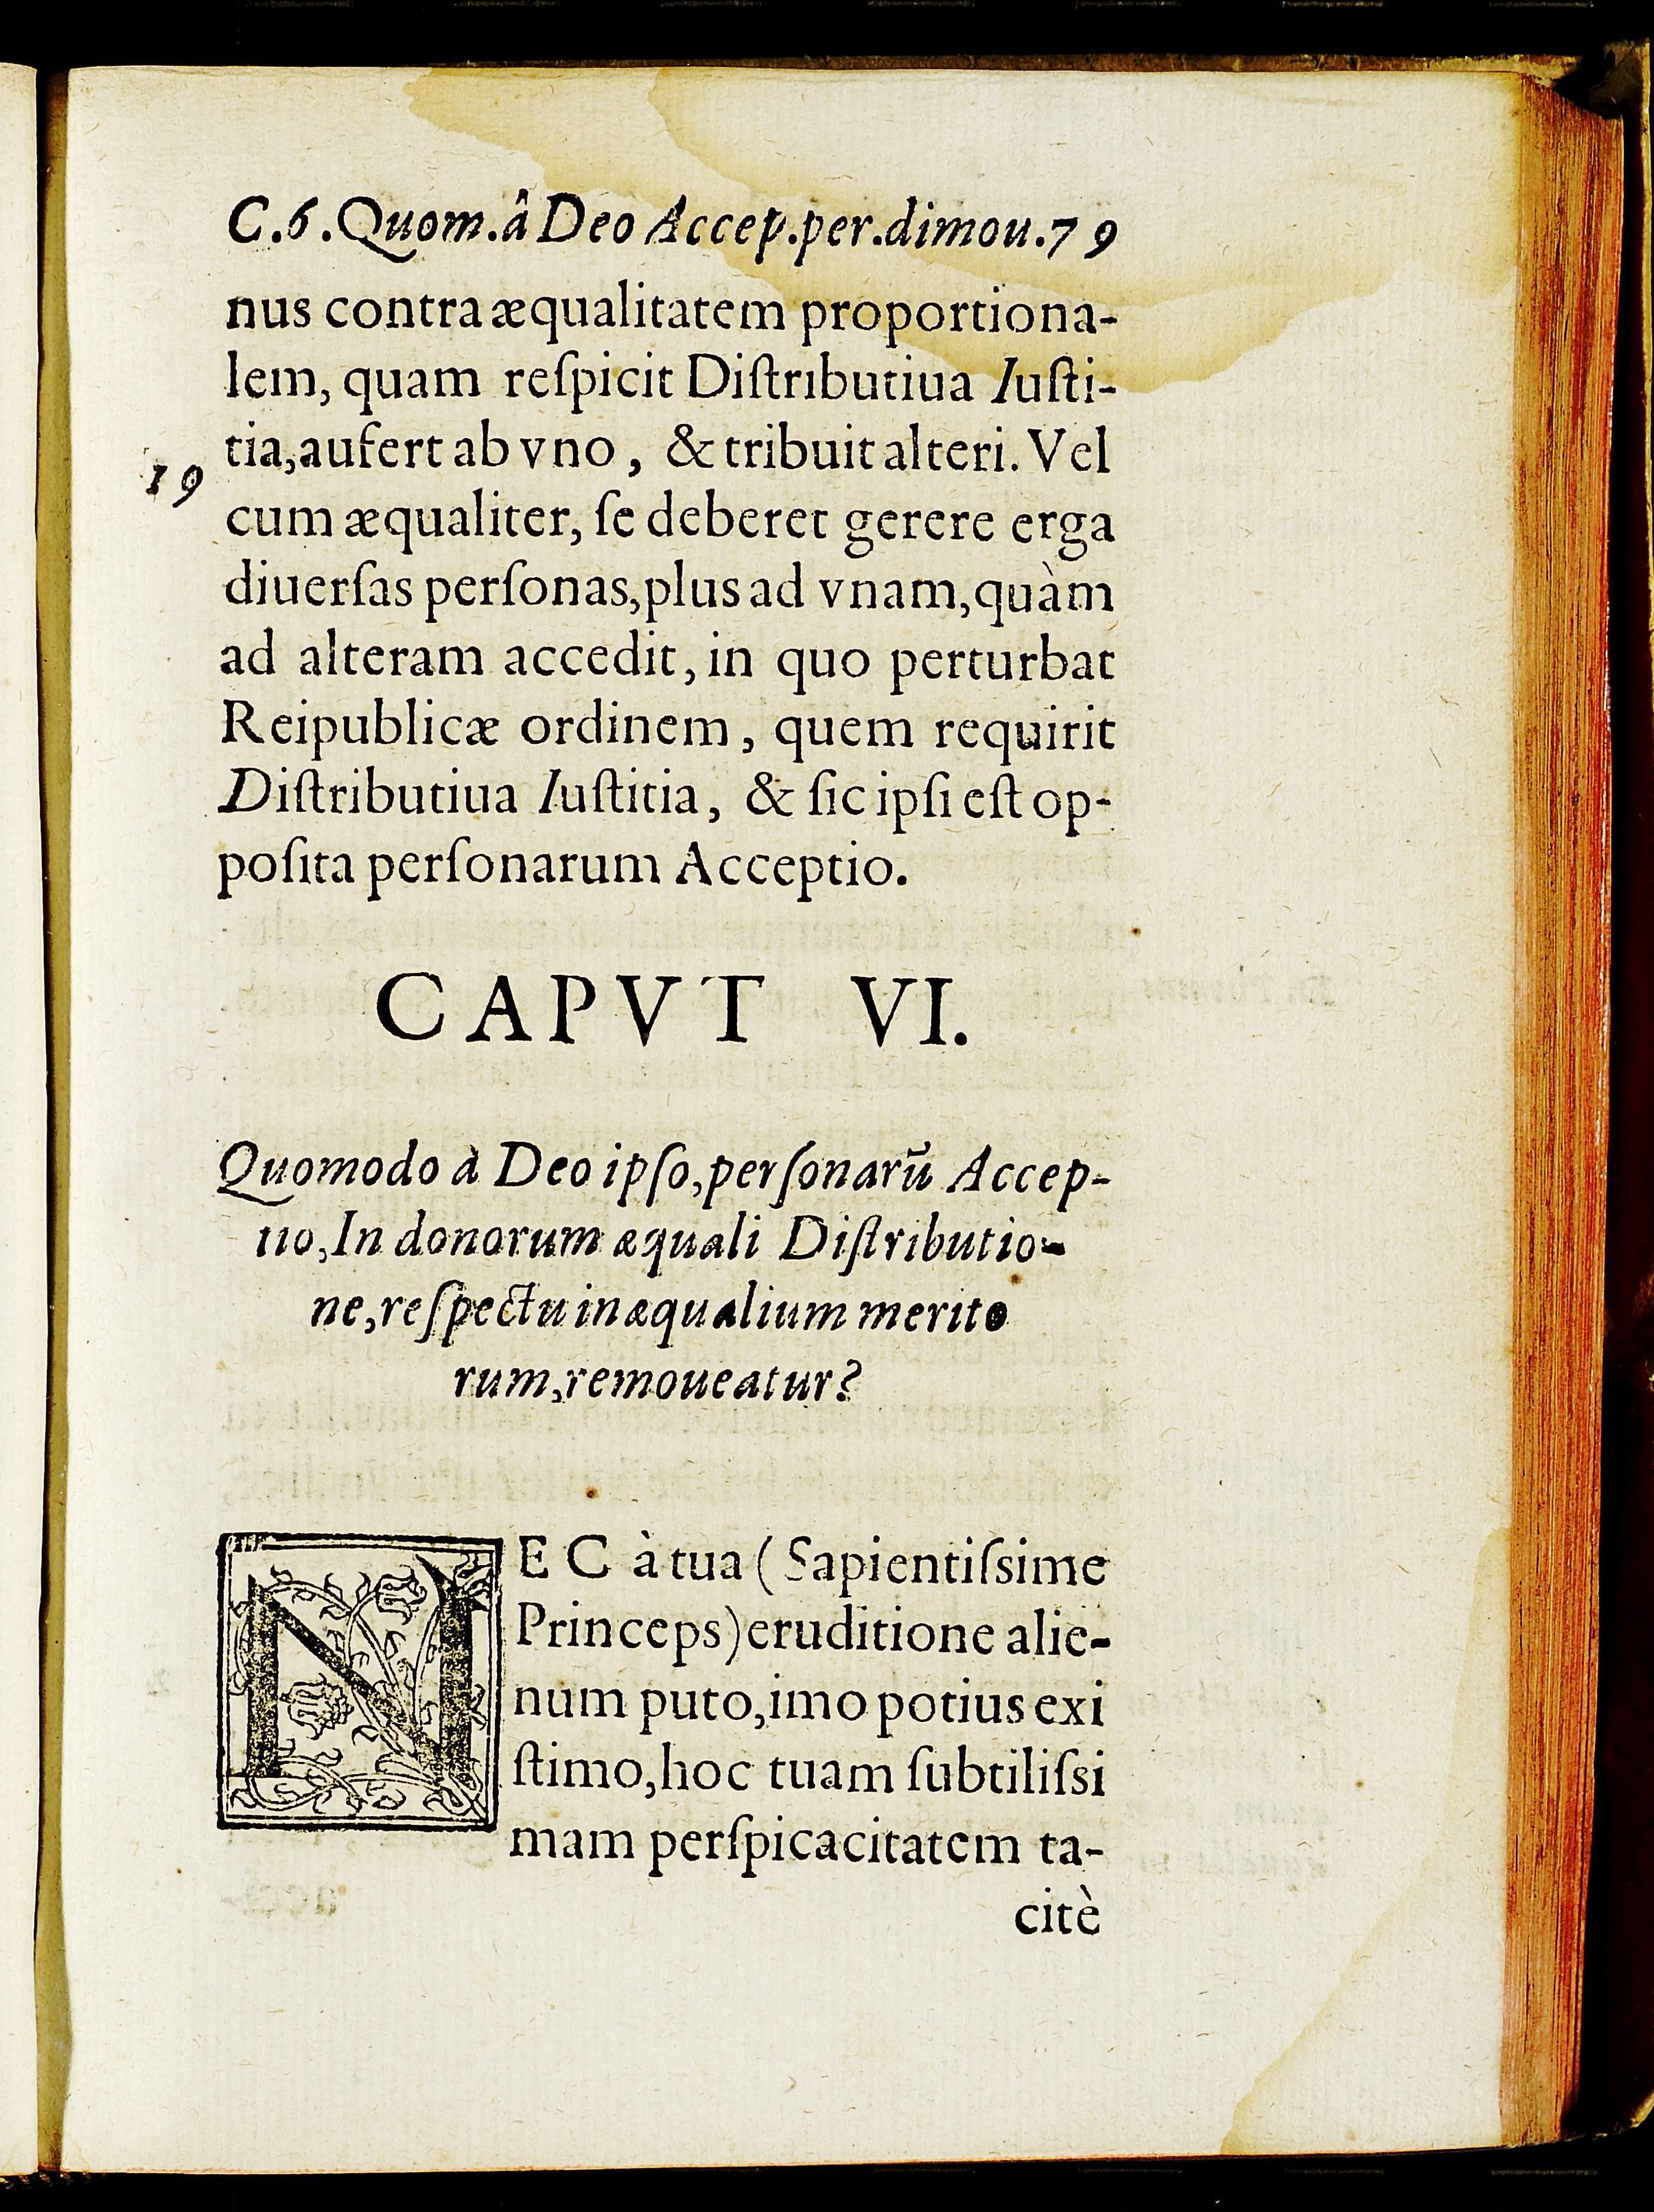 C.6.Quom.â Deo Accep.per.dimou.79
nus contra æqualitatem proportiona-
lem, quam reſpicit Diſtributiua Iuſti-
tia,aufert ab vno, & tribuit alteri. Vel
19
cum æqualiter, ſe deberet gerere erga
diuerſas perſonas,plus ad vnam,quàm
ad alteram accedit, in quo perturbat
Reipublicæ ordinem, quem requirit
Diſtributiua Iuſtitia, & ſic ipſi eſt op-
poſita perſonarum Acceptio.
CAPVT VI.
Quomodo à Deo ipſo,perſonarū Accep-
tio,In donorum æquali Diſtributio-
ne,reſpectu inæqualium merito
rum,remoueatur?
NEC à tua (Sapientiſsime
Princeps)eruditione alie-
num puto,imo potius exi
ſtimo,hoc tuam ſubtiliſsi
mam perſpicacitatem ta-
citè